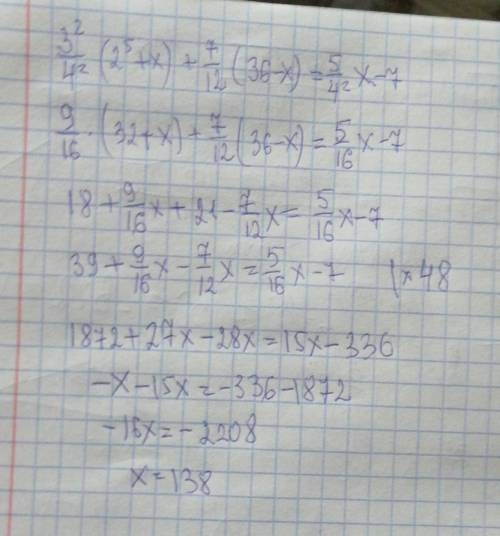 3²/4² (2⁵+x) + 7/12 (36-x) = 5/4² x-7
9/16 · (32+x) + 7/12 (36-x) = 5/16 x-7
18 + 9/16 x + 21 - 7/12 x = 5/16 x-7
39 + 9/16 x - 7/12 x = 5/16 x -7 (×48
1872+27x-28x=15x-336
-x-15x=-336-1872
-16x=-2208
x=138